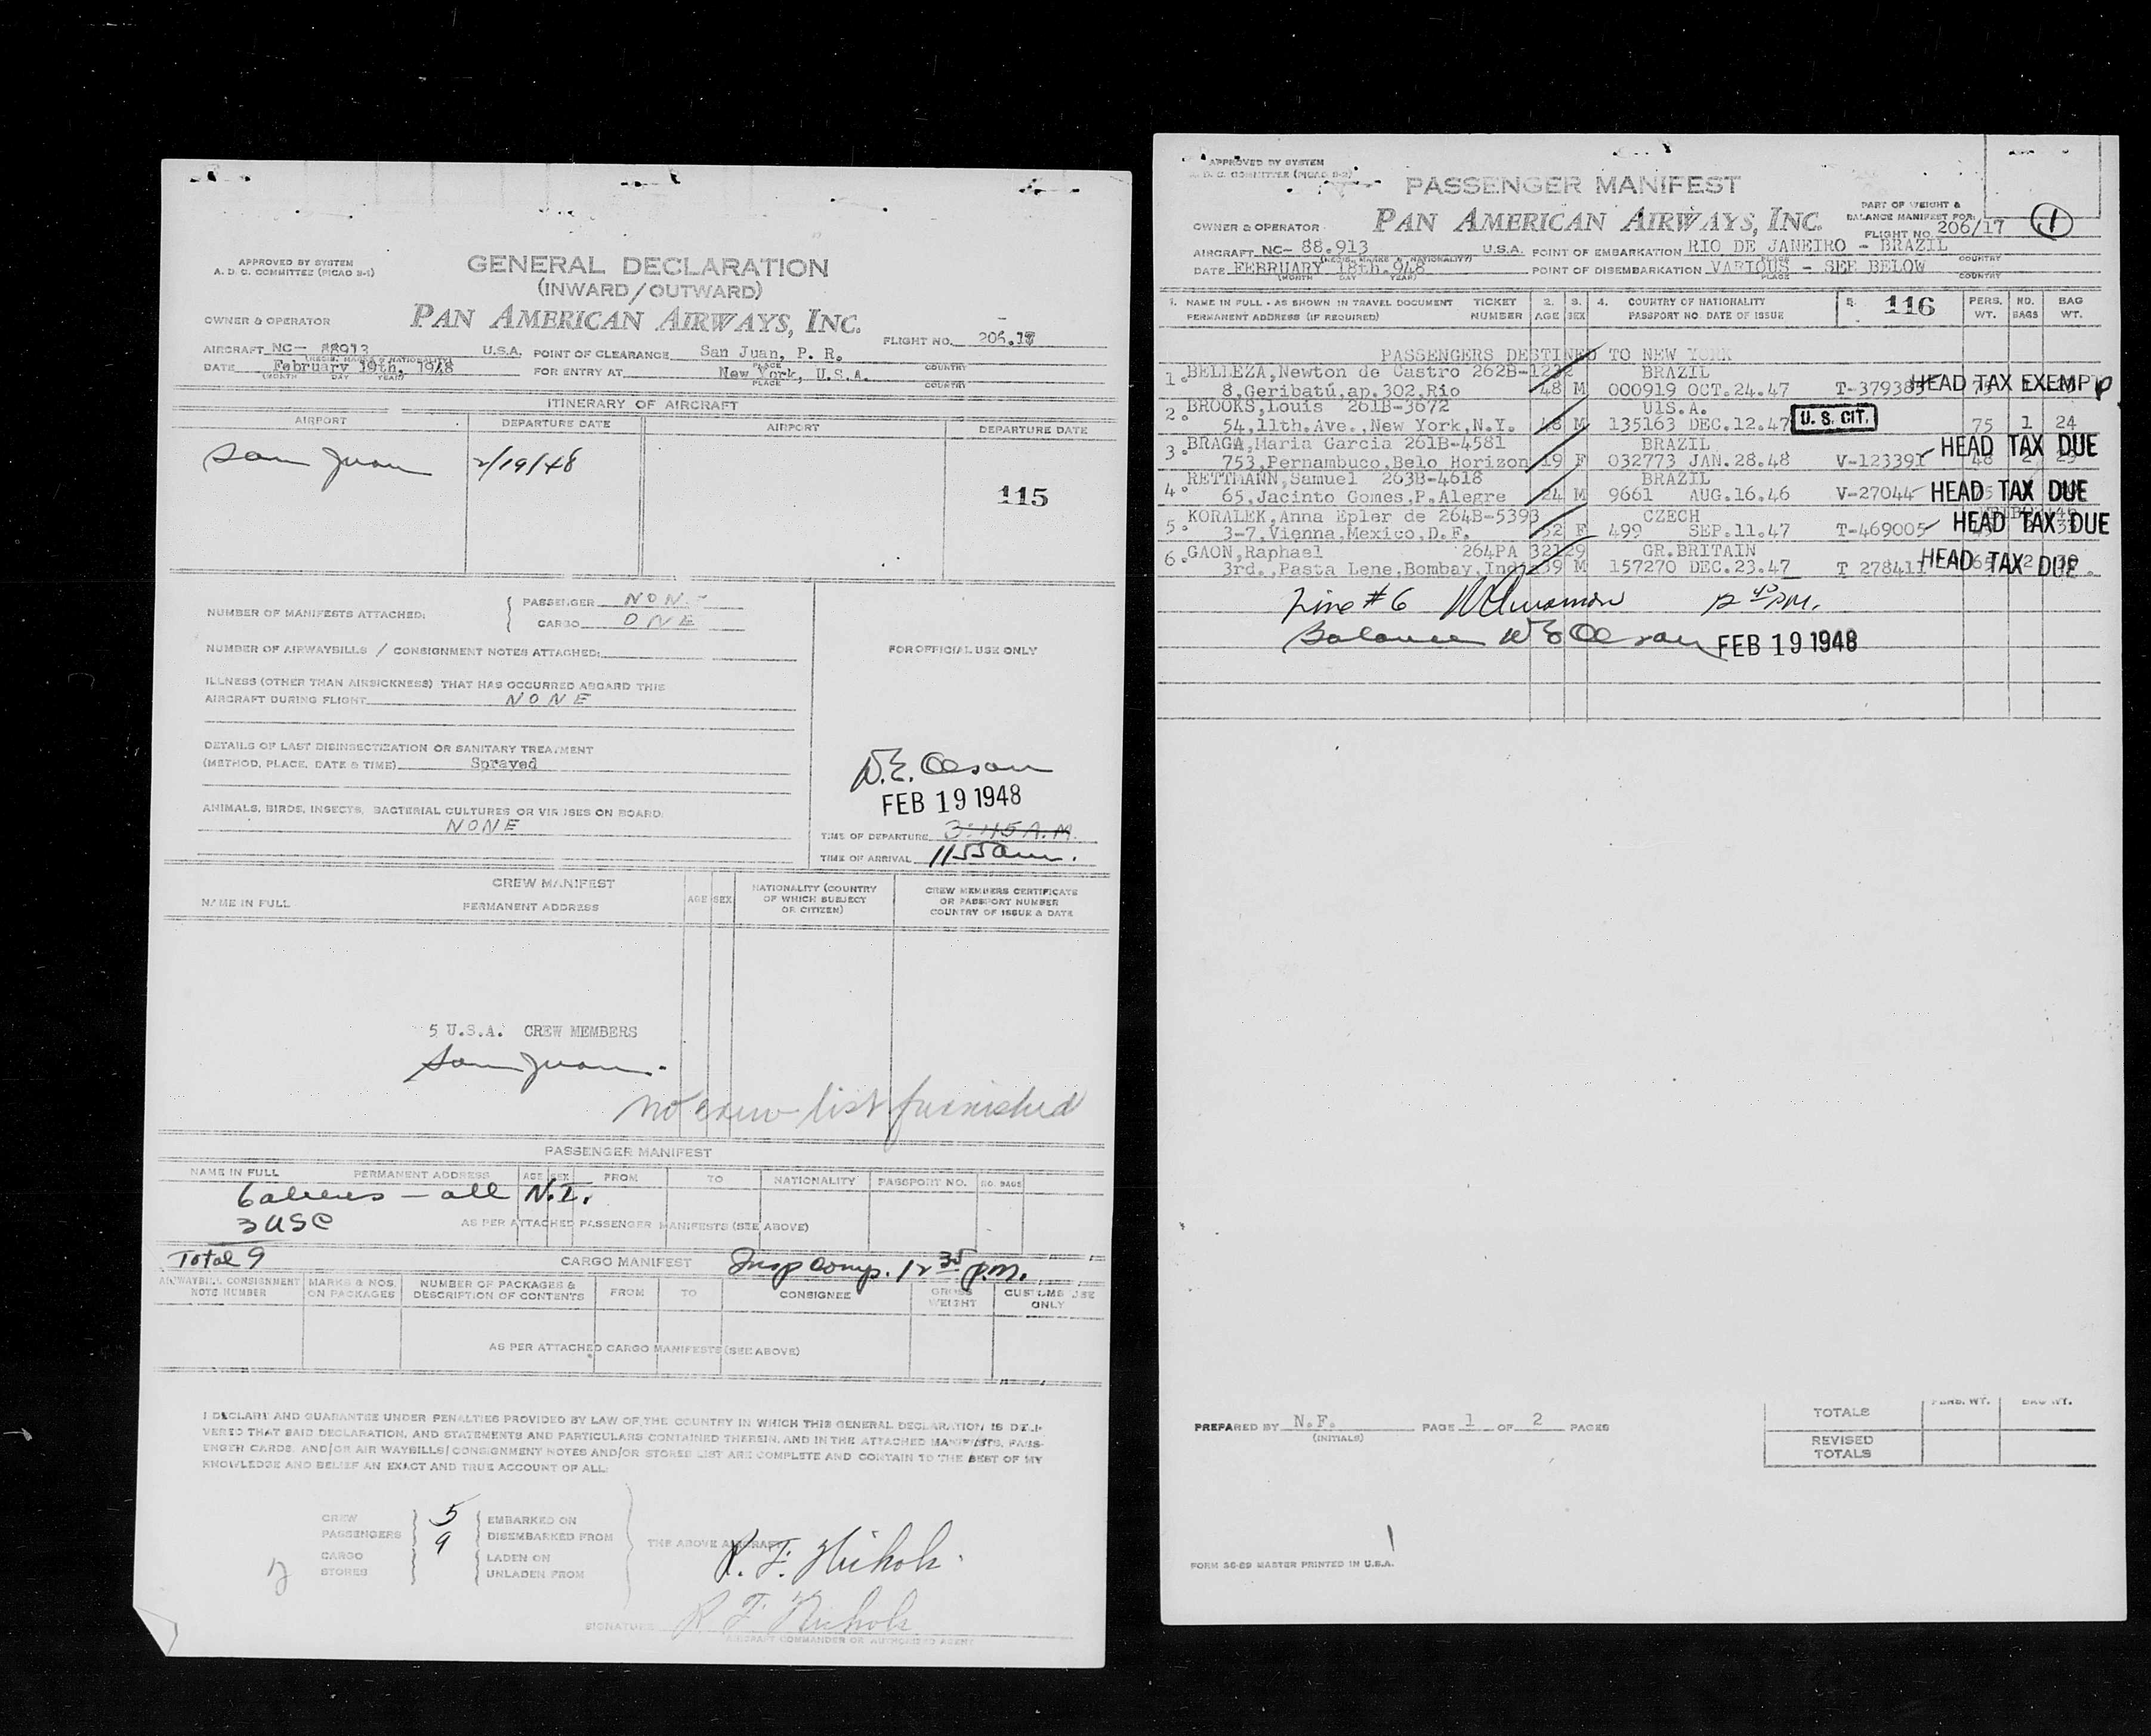 APPROVED BY SYSTEM
A. D. C. COMMITTEE (PICAO B-1)
GENERAL DECLARATION
(INWARD/OUTWARD)
OWNER & OPERATOR
PAN AMERICAN AIRWAYS, INC.
FLIGHT NO. 206.17
AIRCRAFT NC- 88913 U.S.A. POINT OF CLEARANCE San Juan, P. R.
(REGIS. MARKS & NATIONALITY) PLACE COUNTRY
DATE February 19th, 1948 FOR ENTRY AT New York, U.S.A.
(MONTH DAY YEAR) PLACE COUNTRY
ITINERARY OF AIRCRAFT
AIRPORT DEPARTURE DATE AIRPORT DEPARTURE DATE
San Juan 2/19/48
115
NUMBER OF MANIFESTS ATTACHED: PASSENGER NONE
CARGO ONE
NUMBER OF AIRWAYBILLS / CONSIGNMENT NOTES ATTACHED:
FOR OFFICIAL USE ONLY
ILLNESS (OTHER THAN AIRSICKNESS) THAT HAS OCCURRED ABOARD THIS
AIRCRAFT DURING FLIGHT NONE
DETAILS OF LAST DISINSECTIZATION OR SANITARY TREATMENT
(METHOD, PLACE, DATE & TIME) Sprayed
W.E. Olson
FEB 19 1948
ANIMALS, BIRDS, INSECTS, BACTERIAL CULTURES OR VIRUSES ON BOARD:
NONE
TIME OF DEPARTURE 3:45 A.M.
TIME OF ARRIVAL 1155am.
CREW MANIFEST
NAME IN FULL PERMANENT ADDRESS AGE SEX NATIONALITY (COUNTRY OF WHICH SUBJECT OR CITIZEN) CREW MEMBERS CERTIFICATE OR PASSPORT NUMBER COUNTRY OF ISSUE & DATE
5 U.S.A. CREW MEMBERS
San Juan.
no crew list furnished
PASSENGER MANIFEST
NAME IN FULL PERMANENT ADDRESS AGE SEX FROM TO NATIONALITY PASSPORT NO. NO. BAGS
6 aliens - all N.I.
3 USC
AS PER ATTACHED PASSENGER MANIFESTS (SEE ABOVE)
Total 9
CARGO MANIFEST
Insp comp. 12 35 p.m.
AIRWAYBILL CONSIGNMENT NOTE NUMBER MARKS & NOS. ON PACKAGES NUMBER OF PACKAGES & DESCRIPTION OF CONTENTS FROM TO CONSIGNEE GROSS WEIGHT CUSTOMS USE ONLY
AS PER ATTACHED CARGO MANIFESTS (SEE ABOVE)
I DECLARE AND GUARANTEE UNDER PENALTIES PROVIDED BY LAW OF THE COUNTRY IN WHICH THIS GENERAL DECLARATION IS DELI-
VERED THAT SAID DECLARATION, AND STATEMENTS AND PARTICULARS CONTAINED THEREIN, AND IN THE ATTACHED MANIFESTS, PASS-
ENGER CARDS, AND/OR AIR WAYBILLS/CONSIGNMENT NOTES AND/OR STORES LIST ARE COMPLETE AND CONTAIN TO THE BEST OF MY
KNOWLEDGE AND BELIEF AN EXACT AND TRUE ACCOUNT OF ALL:
CREW 5 EMBARKED ON
PASSENGERS 9 DISEMBARKED FROM
THE ABOVE AIRCRAFT
CARGO LADEN ON
STORES UNLADEN FROM
R. F. Nichols
SIGNATURE R F Nichols
AIRCRAFT COMMANDER OR AUTHORIZED AGENT
APPROVED BY SYSTEM
A. D. C. COMMITTEE (PICAO B-2)
PASSENGER MANIFEST
OWNER & OPERATOR
PAN AMERICAN AIRWAYS, INC.
PART OF WEIGHT &
BALANCE MANIFEST FOR:
FLIGHT NO. 206/17
1
AIRCRAFT NC- 88.913 U.S.A. POINT OF EMBARKATION RIO DE JANEIRO - BRAZIL
(REGIS. MARKS & NATIONALITY) PLACE COUNTRY
DATE FEBRUARY 18th.948 POINT OF DISEMBARKATION VARIOUS - SEE BELOW
(MONTH DAY YEAR) PLACE COUNTRY
1. NAME IN FULL - AS SHOWN IN TRAVEL DOCUMENT TICKET 2. 3. 4. COUNTRY OF NATIONALITY 5. 116 PERS. NO. BAG
PERMANENT ADDRESS (IF REQUIRED) NUMBER AGE SEX PASSPORT NO. DATE OF ISSUE WT. BAGS WT.
PASSENGERS DESTINED TO NEW YORK
1. BELLEZA,Newton de Castro 262B-1232 BRAZIL
8,Geribatú,ap.302,Rio 48 M 000919 OCT.24.47 T-379385 HEAD TAX EXEMPT
2. BROOKS,Louis 261B-3672 UIS.A.
54,11th.Ave.,New York,N.Y. 48 M 135163 DEC.12.47 U. S. CIT. 75 1 24
3. BRAGA,Maria Garcia 261B-4581 BRAZIL
753,Pernambuco,Belo Horizon 19 F 032773 JAN.28.48 V-123391 HEAD TAX DUE
4. RETTMANN,Samuel 263B-4618 BRAZIL
65,Jacinto Gomes,P.Alegre 24 M 9661 AUG.16.46 V-27044 HEAD TAX DUE
5. KORALEK,Anna Epler de 264B-5393 CZECH
3-7,Vienna,Mexico,D.F. 32 F 499 SEP.11.47 T-469005 HEAD TAX DUE
6. GAON,Raphael 264PA 32129 GR.BRITAIN
3rd.,Pasta Lene,Bombay,India 39 M 157270 DEC.23.47 T 278411 HEAD TAX DUE
Line # 6 12 40 PM.
Balance W E Olson FEB 19 1948
PREPARED BY N.F. PAGE 1 OF 2 PAGES
(INITIALS)
PERS. WT. BAG WT.
TOTALS
REVISED
TOTALS
FORM 36-89 MASTER PRINTED IN U.S.A.